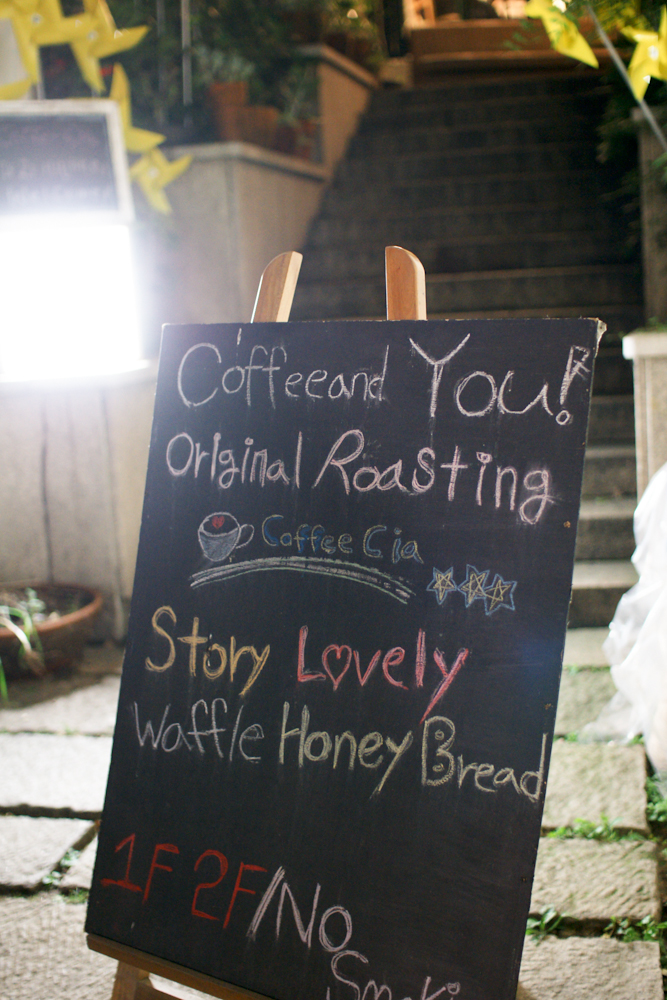 Coffee and You!
Original Roasting
Coffee Cia
Story Lovely
Waffle Honey Bread
1F 2F/No